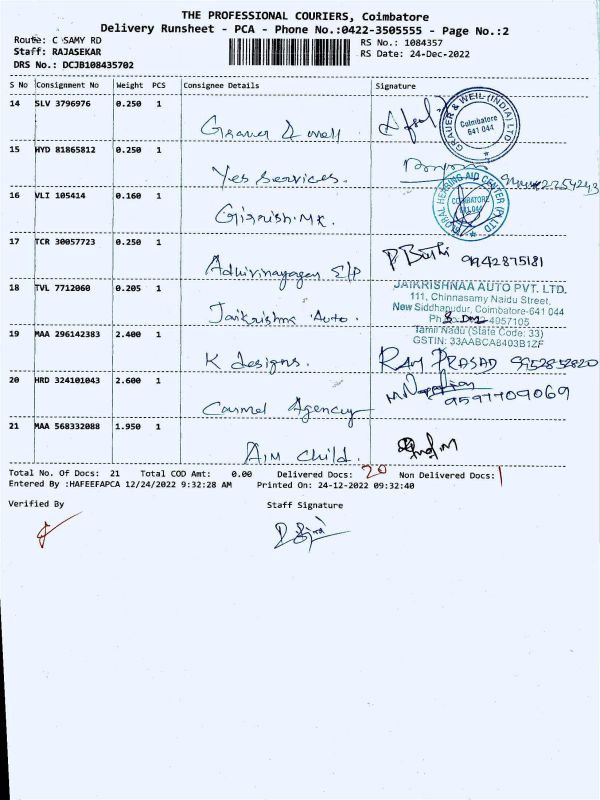 THE PROFESSIONAL COURIERS, Coimbatore
Delivery Runsheet - PCA - Phone No.:0422-3505555 - Page No.:2
Route: C SAMY RD
RS No.: 1084357
Staff: RAJASEKAR
RS Date: 24-Dec-2022
DRS No.: DCJB108435702
S No Consignment No Weight PCS Consignee Details Signature
14 SLV 3796976 0.250 1
Grauer & Weil
GRAUER & WEIL (INDIA) LTD
Coimbatore
641 044
15 HYD 81865812 0.250 1
Yes Services.
16 VLI 105414 0.160 1
GLOBAL HEARING AID CENTER (P) LTD
COIMBATORE
17 TCR 30057723 0.250 1
9942875181
18 TVL 7712060 0.205 1
Jaikrishna Auto.
JAIKRISHNAA AUTO PVT. LTD.
111, Chinnasamy Naidu Street,
New Siddhapudur, Coimbatore-641 044
4957105
Tamil Nadu (State Code: 33)
GSTIN: 33AABCA8403B1ZF
19 MAA 296142383 2.400 1
K designs.
RAM PRASAD 9952852820
20 HRD 324101043 2.600 1
Carmel Agency
9597709069
21 MAA 568332088 1.950 1
AIM child.
Total No. Of Docs: 21 Total COD Amt: 0.00 Delivered Docs: 20 Non Delivered Docs: 1
Entered By :HAFEEFAPCA 12/24/2022 9:32:28 AM Printed On: 24-12-2022 09:32:40
Verified By Staff Signature